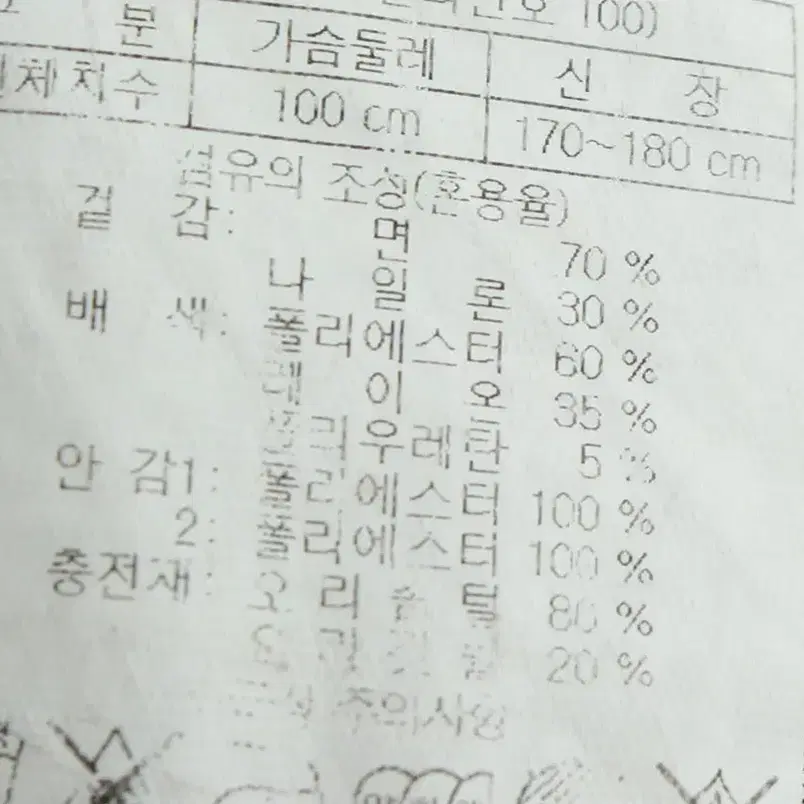 100)
분 가슴둘레 신 장
체치수 100 cm 170~180 cm
섬유의 조성(혼용율)
겉 감: 면 70 %
나 일 론 30 %
배 색: 폴 리 에 스 터 60 %
레 이 온 35 %
리 우 레 탄 5 %
안 감1: 폴 리 에 스 터 100 %
2: 폴 리 에 스 터 100 %
충전재: 오 리 솜 털 80 %
20 %
주의사항